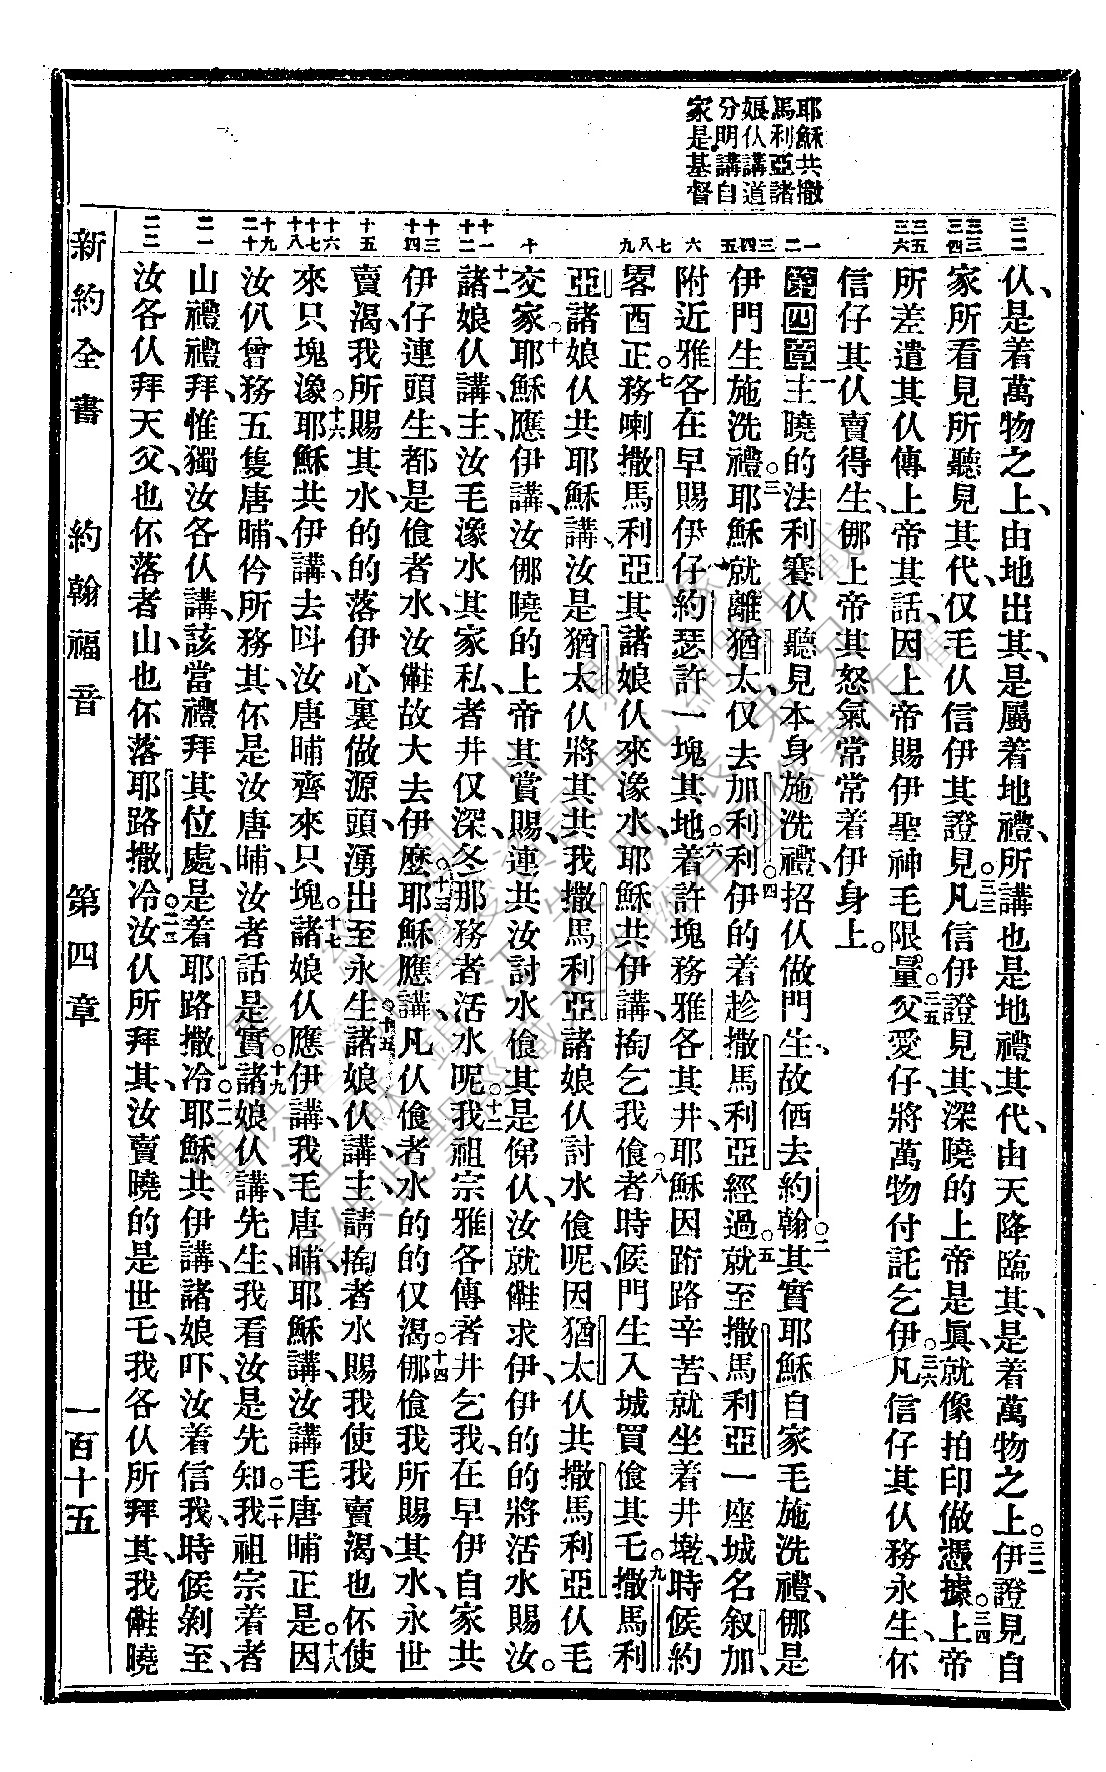 耶穌共撒
馬利亞諸
娘仈講道
分明講自
家是基督
三二
三三
三四
三五
三六
一
二
三
四
五
六
七
八
九
十
十一
十二
十三
十四
十五
十六
十七
十八
十九
二十
二一
二二
仈是着萬物之上、由地出其、是屬着地禮、所講也是地禮其代、由天降臨其、是着萬物之上。三二伊證見自
家所看見所聽見其代、仅毛仈信伊其證見。三三凡信伊證見其、深曉的上帝是眞、就像拍印做憑據。三四上帝
所差遣其仈傳上帝其話、因上帝賜伊聖神毛限量。三五父愛仔、將萬物付託乞伊。三六凡信仔其仈務永生、伓
信仔其仈賣得生、㑚上帝其怒氣常常着伊身上。
第四章一主曉的法利賽仈聽見本身施洗禮、招仈做門生、故㑚去約翰。二其實耶穌自家毛施洗禮、㑚是
伊門生施洗禮。三耶穌就離猶太、仅去加利利。四伊的着趁撒馬利亞經過。五就至撒馬利亞一座城名叙加、
附近雅各在早賜伊仔約瑟許一塊其地。六着許塊務雅各其井、耶穌因跀路辛苦、就坐着井墘、時候約
畧酉正。七務喇撒馬利亞其諸娘仈來潒水、耶穌共伊講、掏乞我飡者時候、門生入城買飡其乇。九撒馬利
亞諸娘仈共耶穌講、汝是猶太仈、將其共我撒馬利亞諸娘仈討水飡呢、因猶太仈共撒馬利亞仈毛
交家。十耶穌應伊講、汝㑚曉的上帝其賞賜、連共汝討水飡其是㑚仈、汝就㒰求伊、伊的將活水賜汝。
十一諸娘仈講、主、汝毛潒水其家私、者井仅深、冬那務者活水呢。十二我祖宗雅各傳者井乞我、在早伊自家共
伊仔連頭生、都是飡者水、汝㒰故大去伊麽。十三耶穌應講、凡仈飡者水的的仅渴。十四㑚飡我所賜其水、永世
賣渴、我所賜其水的的落伊心裏做源頭、湧出至永生。十五諸娘仈講、主、請掏者水賜我、使我賣渴、也伓使
來只塊潒。十六耶穌共伊講、去呌汝唐晡齊來只塊。十七諸娘仈應伊講、我毛唐晡、耶穌講、汝講毛唐晡正是。十八因
汝仈曾務五隻唐晡、仱所務其、伓是汝唐晡、汝者話是實。十九諸娘仈講、先生、我看汝是先知。二十我祖宗着者
山禮禮拜、惟獨汝各仈講、該當禮拜其位處、是着耶路撒冷。二一耶穌共伊講、諸娘吓、汝着信我、時候剝至、
汝各仈拜天父、也伓落者山、也伓落耶路撒冷。二二汝仈所拜其、汝賣曉的是世乇、我各仈所拜其、我㒰曉
新約全書　約翰福音　第四章　一百十五